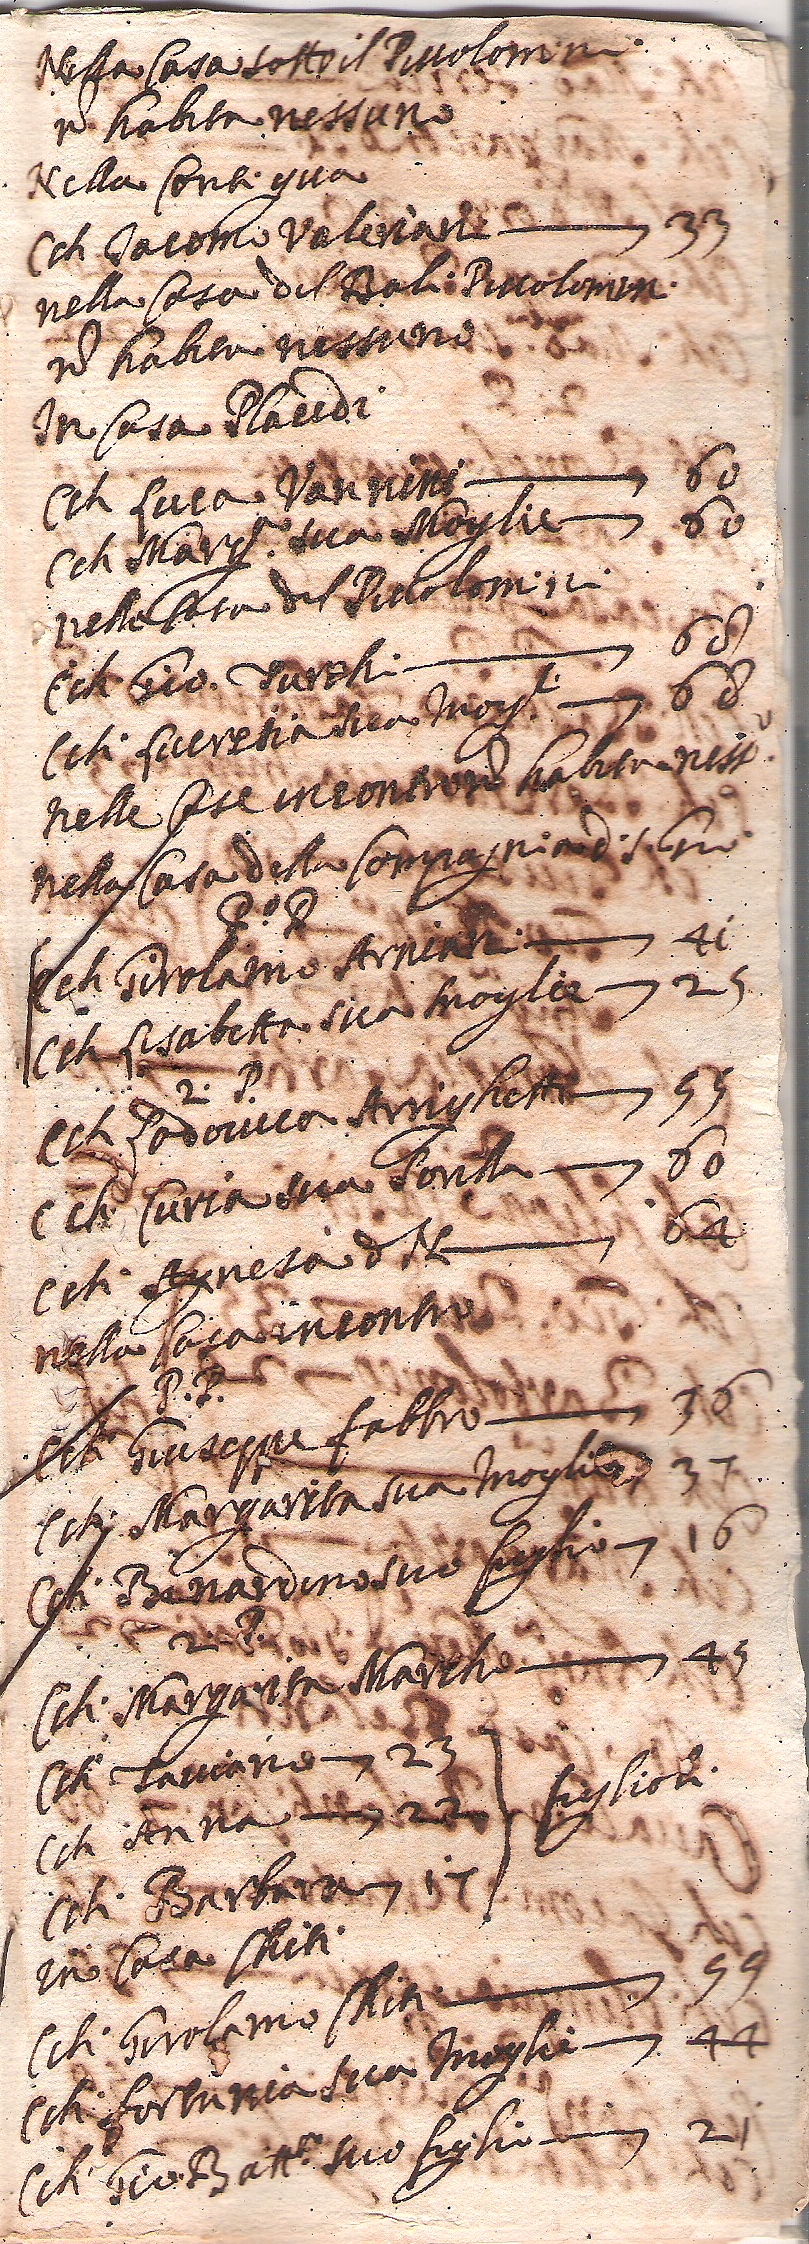 Nella Casa sotto il Piccolomini
nō habita nessuno
Nella Contigua
CCh Jacomo Valeriani 33
nella Casa del Bali Piccolomin.
nō habita nessuno
In Casa Placidi
CCh Luca Vannini 60
CCh Marg.ta sua Moglie 60
nella Casa del Piccolomini
CCh Gio. Turchi 68
CCh Lucretia sua Mogl. 68
nelle Case incontro nō habita ness.o
nella Casa della Compagnia di S.
P.o P.
CCh Girolamo Arniani 41
CCh Lisabetta sua moglie 25
2. P.
CCh Lodovica Arrighetti 55
CCh Curia sua Sorella 60
CCh Agnesa d N 64
nella Casa incontro
P. P.
CCh Giuseppe fabbro 36
CCh Margarita sua moglie 37
CCh Benardino suo figlio 16
2. P.
CCh Margarita Marchi 45
CCh Taviano 23
CCh Anna 22 figlioli
CCh Barbara 17
in Casa Chiti
CCh Girolamo Chiti 59
CCh fortunia sua Moglie 44
CCh Gio: Batt.a suo figlio 21